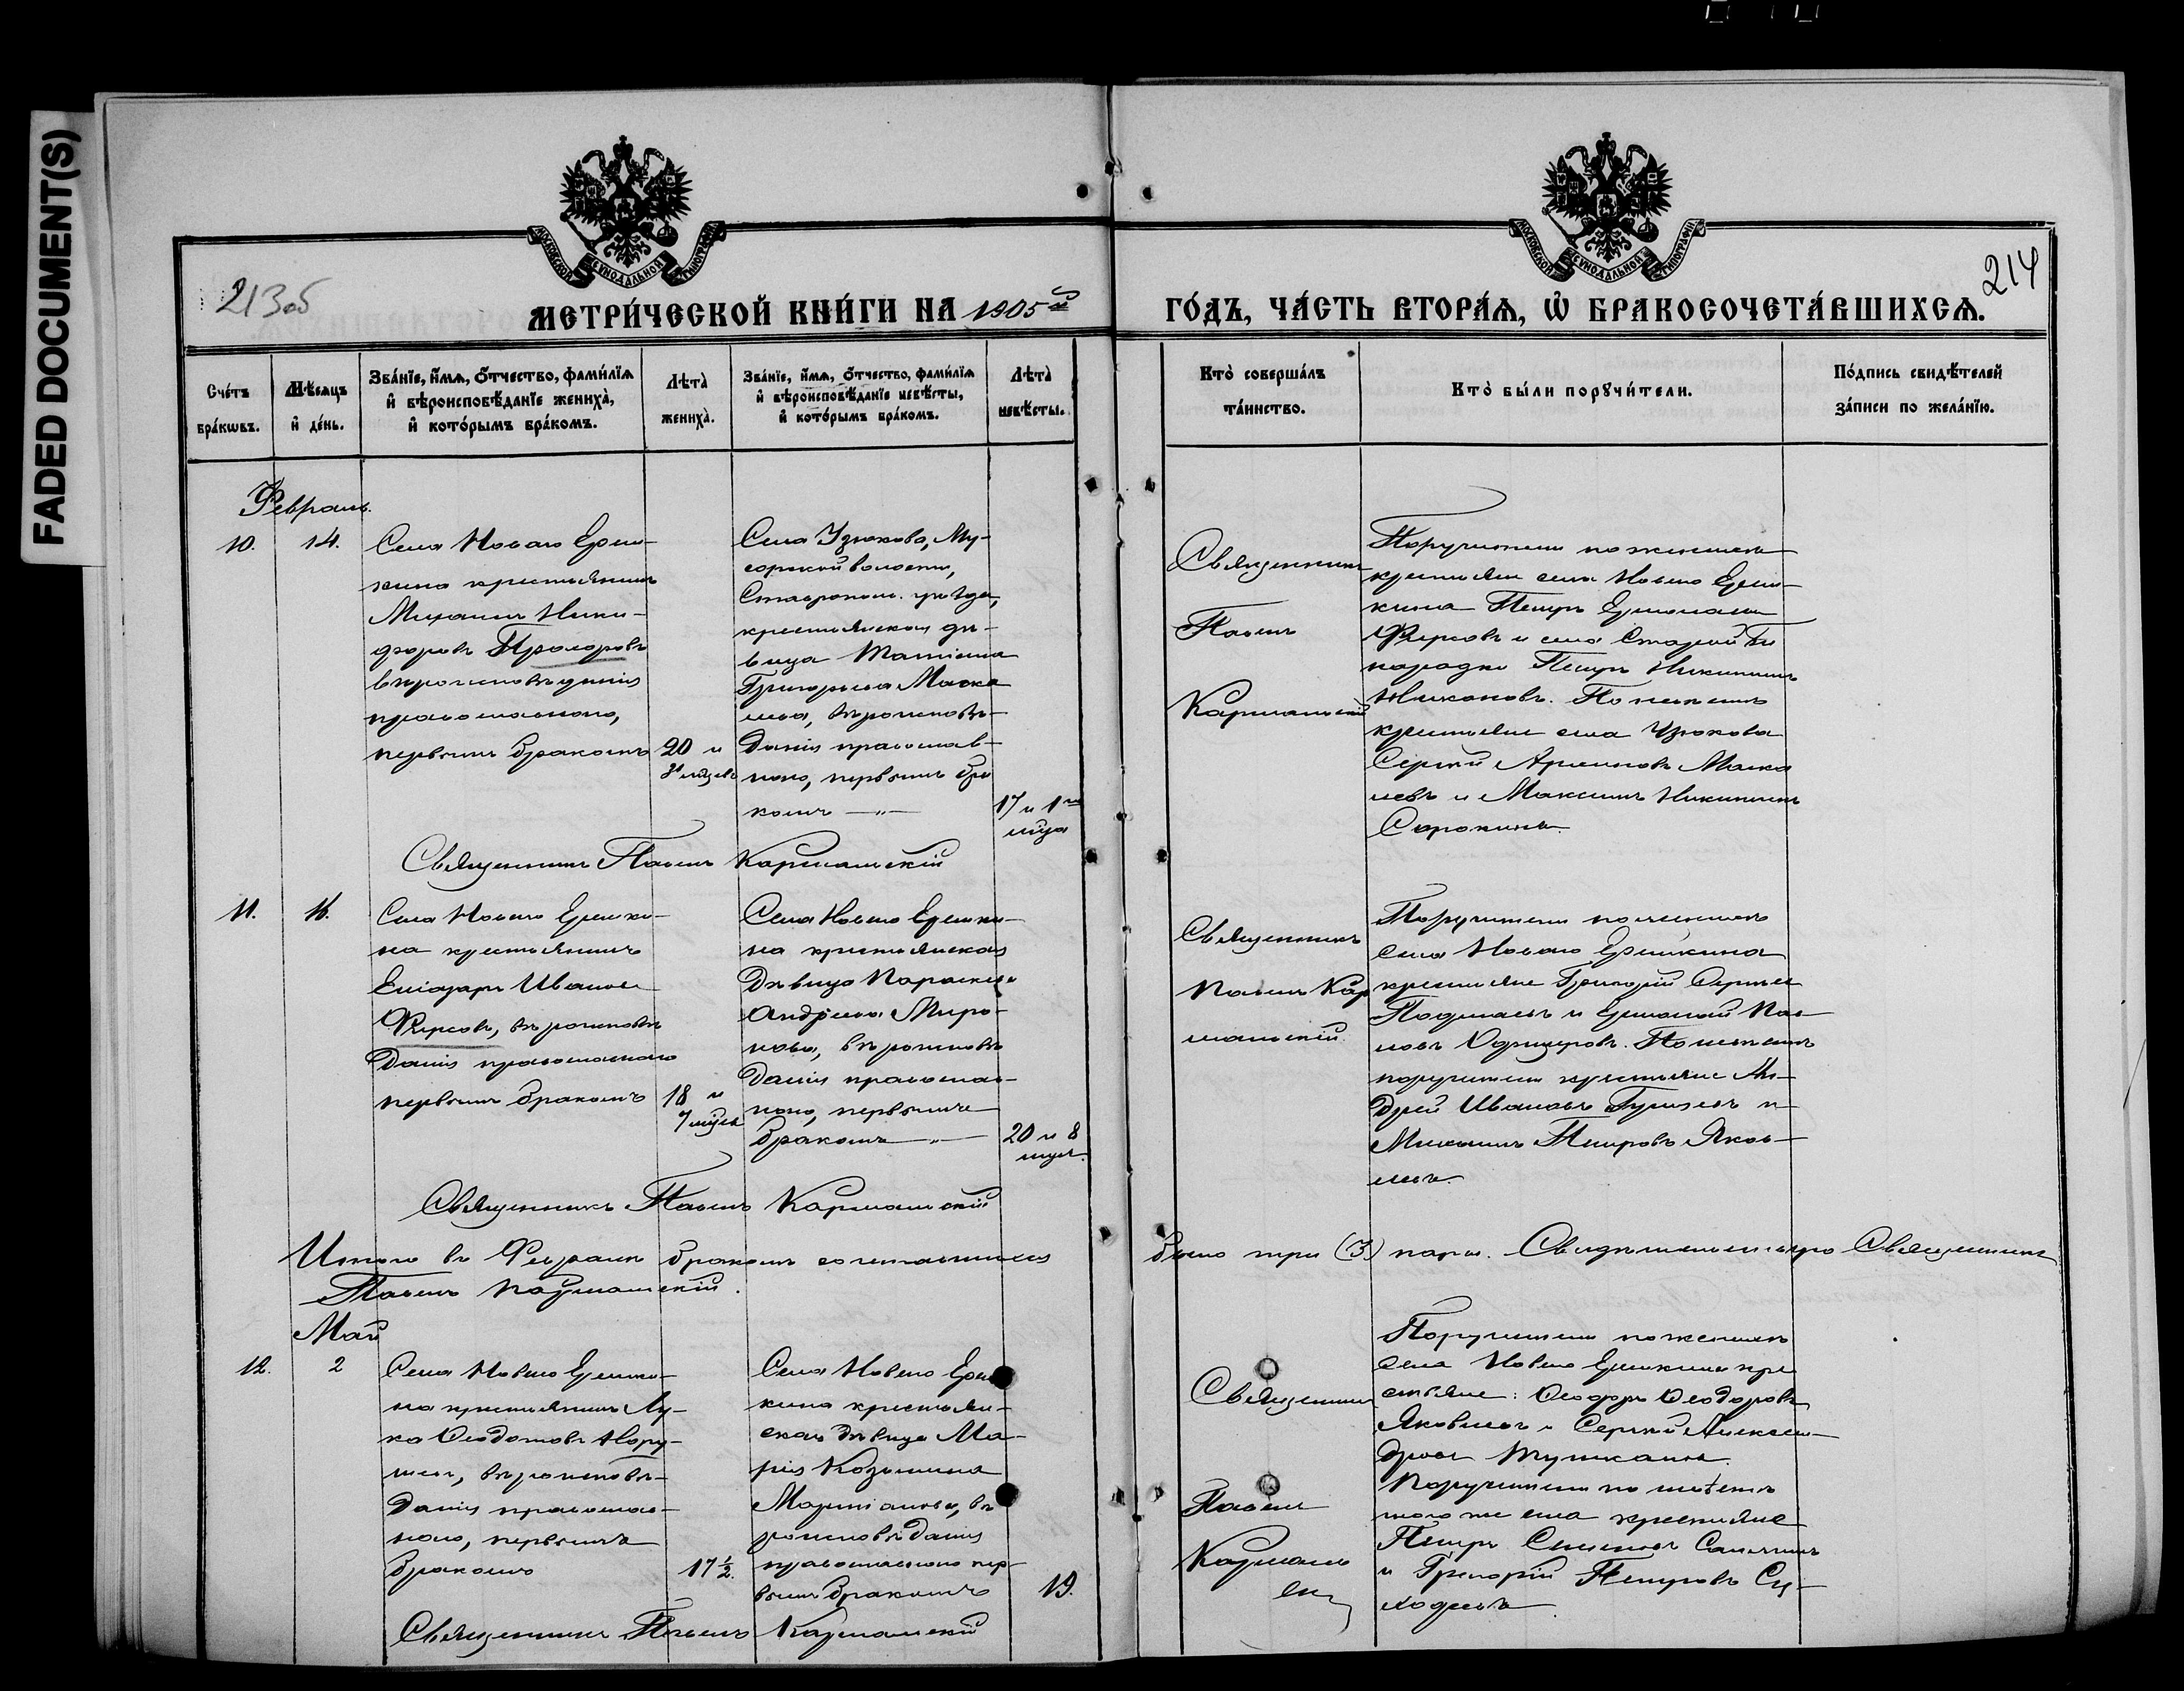 FADED DOCUMENT(S)
213об
214
МОСКОВСКОЙ СУНОДАЛЬНОЙ ТИПОГРАФІИ
МОСКОВСКОЙ СУНОДАЛЬНОЙ ТИПОГРАФІИ
МЕТРИ́ЧЕСКОЙ КНИ́ГИ НА 1905й
ГО́ДЪ, ЧА́СТЬ ВТОРА́Ѧ, Ѡ҆ БРАКОСОЧЕТА́ВШИХСѦ.
Сче́тъ бра́кѡвъ.
Мѣ́сѧцъ и҆ де́нь.
Зва́нїе, и҆́мѧ, ѻ҆́тчество, фами́лїѧ
и҆ вѣроисповѣ́данїе жениха̀,
и҆ кото́рымъ бра́комъ.
Лѣта̀ жениха̀.
Зва́нїе, и҆́мѧ, ѻ҆́тчество, фами́лїѧ
и҆ вѣроисповѣ́данїе невѣ́сты,
и҆ кото́рымъ бра́комъ.
Лѣта̀ невѣ́сты.
Кто̀ соверша́лъ
та́инство.
Кто̀ бы́ли порꙋчи́тели.
По́дпись свидѣ́телей
за́писи по жела́нїю.
Февраль.
10.
14.
Села Новаго Ерем-
кина крестьянинъ
Михаилъ Ники-
форовъ Прохоровъ
вѣроисповѣданія
православнаго,
первымъ бракомъ
20 и
Села Узюкова, Му-
сорской волости,
Ставропол. уѣзда,
крестьянская дѣ-
вица Татіана
Григорьева Моска
лева, вѣроисповѣ-
данія православ-
наго, первымъ бра
комъ —"—
17 и 1
мца
Священникъ
Павелъ
Кармальскій
Поручители по женихѣ
крестьяне села Новаго Ерем-
кина Петръ
Фирсовъ и села Старой Би
нарадки Петръ Никитинъ
Никоновъ. По невѣстѣ
крестьяне села Узюкова
Сергѣй Моска
левъ и Максимъ Никитинъ
Сорокинъ.
Священникъ Павелъ Кармальскій
11.
16.
Села Новаго Еремки-
на крестьянинъ
Елізаръ Ивановъ
Фирсовъ, вѣроисповѣ
данія православнаго
первымъ бракомъ
18 и
7 мцев
Села Новаго Еремки-
на крестьянская
дѣвица Параскева
Андреева Миро-
нова, вѣроисповѣ
данія православ-
наго, первымъ
бракомъ —"—
20 и 8
мцев.
Священникъ
Павелъ Кар
мальскій.
Поручители по женихѣ
села Новаго Еремкина
крестьяне Григорій Сергѣев
и Ермолай Пав
ловъ. По невѣстѣ
поручители крестьяне Ан-
дрей Ивановъ и
Петровъ Яков-
левъ.
Священникъ Павелъ Кармальскій
Итого въ Февралѣ бракомъ сочетавшихся
было три (3) пары. Свидѣтельствую Священникъ
Павелъ Кармальскій.
Май
12.
2
Села Новаго Еремки-
на крестьянинъ Лу-
ка Ѳедотовъ
вѣроисповѣ-
данія православ-
наго, первымъ
бракомъ
17½.
Села Новаго Ерем
кина крестьян-
ская дѣвица Ма-
рія Козьмина
Мартіанова, вѣ
роисповѣданія
православнаго пер-
вымъ бракомъ
19.
Священникъ
Павелъ
Кармаль
скій
Поручители по женихѣ
села Новаго Еремкина кре
стьяне: Ѳеодоръ Ѳеодоровъ
Яковлевъ и Сергѣй Алексан-
дровъ
Поручители по невѣстѣ
того же села крестьяне
Петръ
и Григорій Петровъ
Священникъ Павелъ Кармальскій